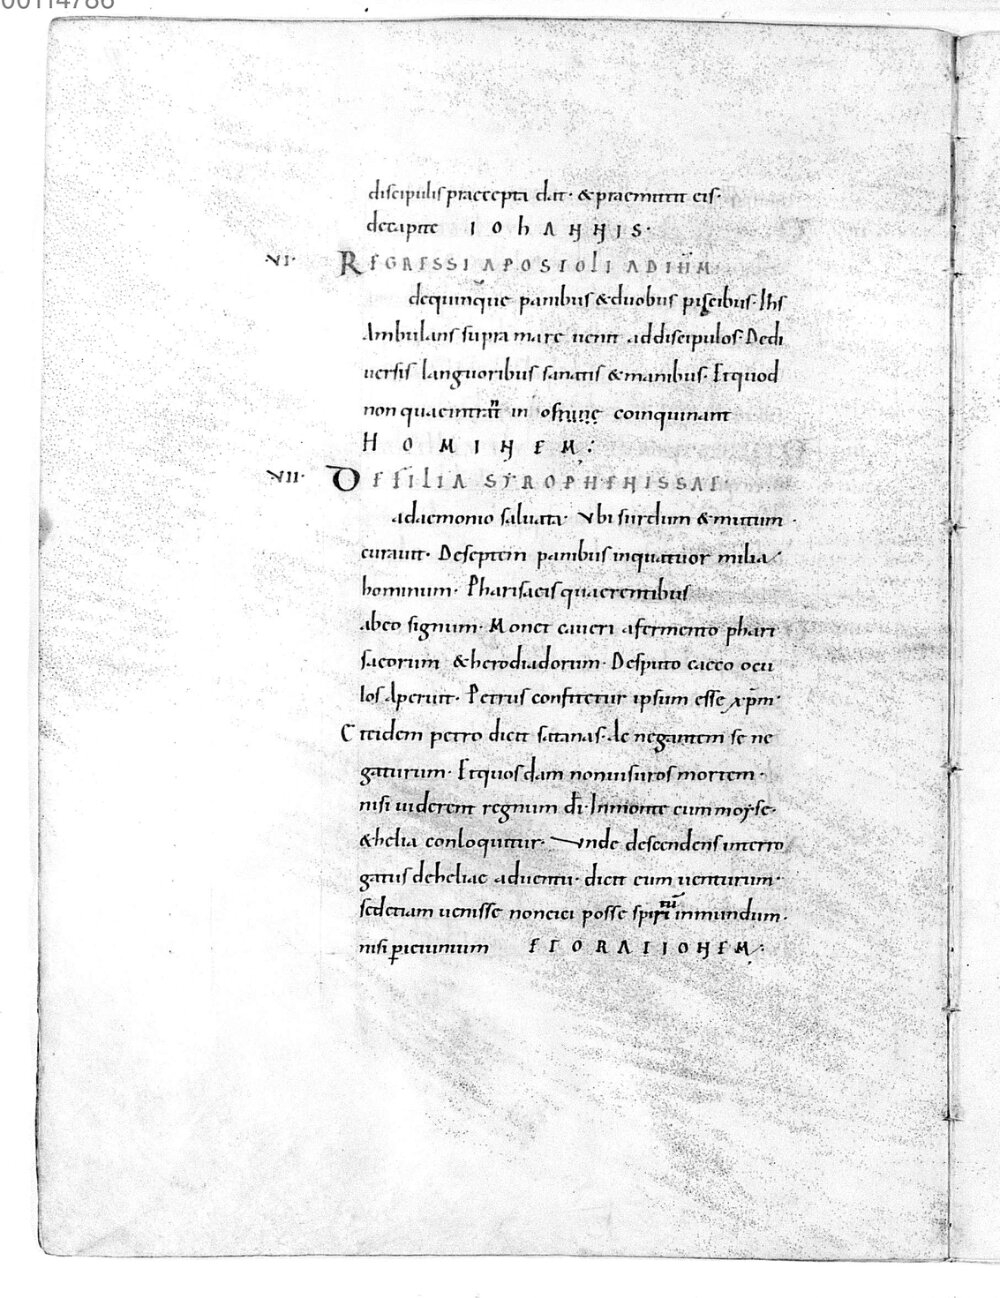 00114786
discipulis praecepta dat· & praemittit eis·
decapite IOHANNIS·
VI· REGRESSI APOSTOLI AD IHM
dequinque panibus & duobus piscibus· Ihs
Ambulans supra mare uenit addiscipulos· Dedi
uersis languoribus sanatis & manibus· Et quod
non quae intrant in os hominem coinquinant
HOMINEM;
VII· DE FILIA SYROPHENISSAE·
adaemonio saluata· Vbi surdum & mutum·
curauit· De septem panibus inquattuor milia
hominum· Pharisaeis quaerentibus
abeo signum· Monet caueri afermento phari
saeorum & herodiadorum· Desputo caeco ocu
los Aperuit· Petrus confitetur ipsum esse xpm·
Et eidem petro dicit satanas· de negantem se ne
gaturum· Et quosdam nonuisuros mortem·
nisi uiderent regnum di· Inmonte cum moyse·
& helia conloquitur· Vnde descendens interro
gatus deheliae aduentu· dicit eum uenturum·
sed etiam uenisse non eici posse spiritum inmundum·
nisi p ieiunium ET ORATIONEM;